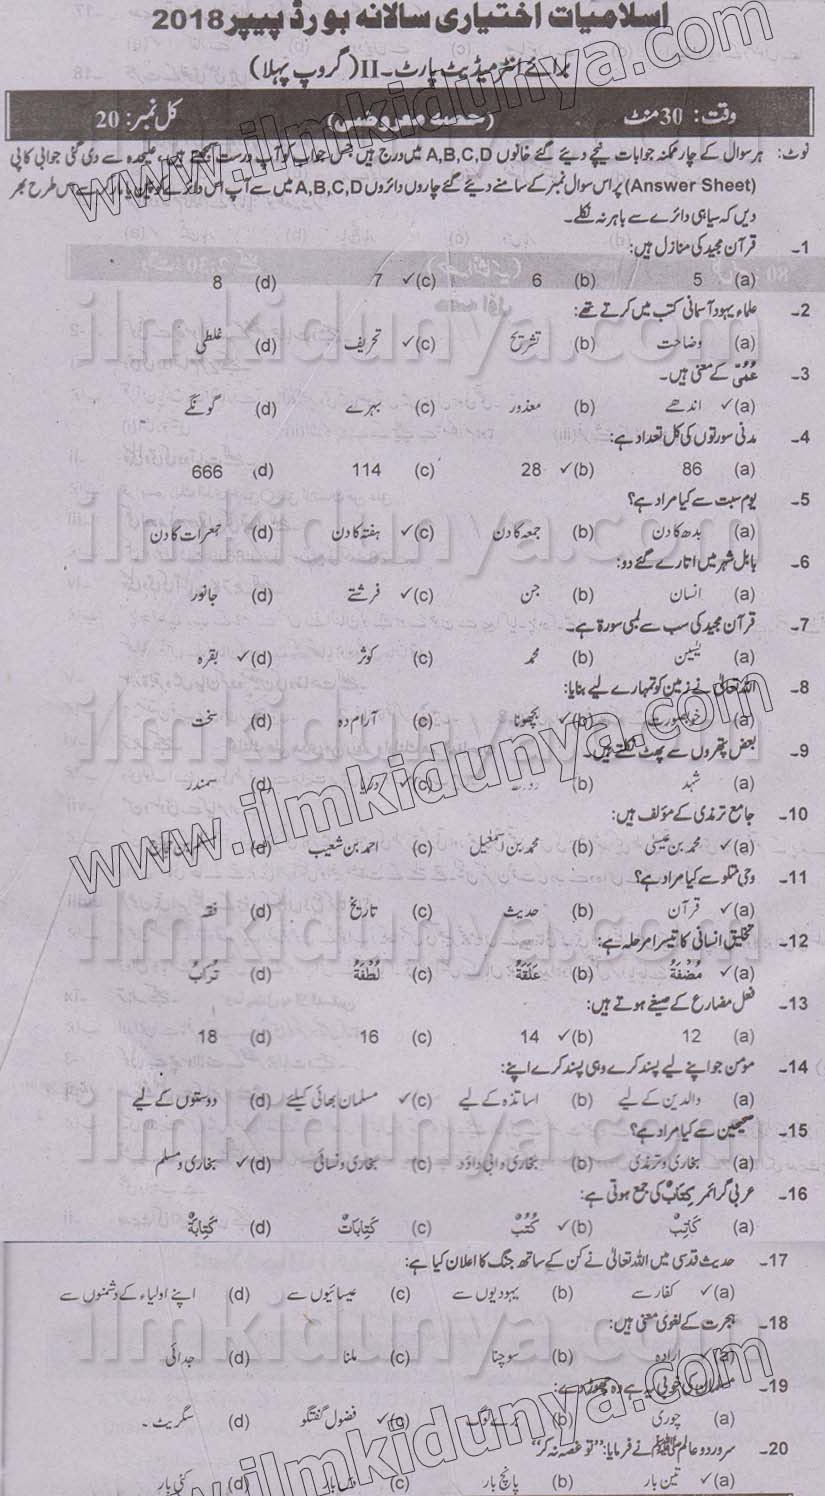 اسلامیات اختیاری سالانہ بورڈ پیپر 2018
برائے انٹرمیڈیٹ پارٹ۔II (گروپ پہلا)
وقت: 30 منٹ (حصہ معروضی) کل نمبر: 20
نوٹ: ہر سوال کے چار ممکنہ جوابات نیچے دیئے گئے خانوں A,B,C,D میں درج ہیں جس جواب کو آپ درست سمجھتے ہیں، علیحدہ سے دی گئی جوابی کاپی
(Answer Sheet) پر اس سوال نمبر کے سامنے دیئے گئے چاروں دائروں A,B,C,D میں سے آپ اس دائرے کو پین یا مارکر سے اس طرح بھر
دیں کہ سیاہی دائرے سے باہر نہ نکلے۔
1۔ قرآن مجید کی منازل ہیں:
(a) 5 (b) 6 (c)✓ 7 (d) 8
2۔ علماء یہود آسمانی کتب میں کرتے تھے:
(a) وضاحت (b) تشریح (c)✓ تحریف (d) غلطی
3۔ عُمْیٌ کے معنی ہیں۔
(a)✓ اندھے (b) معذور (c) بہرے (d) گونگے
4۔ مدنی سورتوں کی کل تعداد ہے:
(a) 86 (b)✓ 28 (c) 114 (d) 666
5۔ یوم سبت سے کیا مراد ہے؟
(a) بدھ کا دن (b) جمعہ کا دن (c)✓ ہفتہ کا دن (d) جمعرات کا دن
6۔ بابل شہر میں اتارے گئے دو:
(a) انسان (b) جن (c)✓ فرشتے (d) جانور
7۔ قرآن مجید کی سب سے لمبی سورۃ ہے۔
(a) یٰسین (b) محمد (c) کوثر (d)✓ بقرہ
8۔ اللہ تعالیٰ نے زمین کو تمہارے لیے بنایا:
(a) خوبصورت (b)✓ بچھونا (c) آرام دہ (d) سخت
9۔ بعض پتھروں سے پھٹ نکلتے ہیں۔
(a) شہد (b) (c)✓ دریا (d) سمندر
10۔ جامع ترمذی کے مؤلف ہیں:
(a)✓ محمد بن عیسٰی (b) محمد بن اسمٰعیل (c) احمد بن شعیب (d)
11۔ وحی متلو سے کیا مراد ہے؟
(a)✓ قرآن (b) حدیث (c) تاریخ (d) فقہ
12۔ تخلیق انسانی کا تیسرا مرحلہ ہے:
(a)✓ مُضْغَةٌ (b) عَلَقَةٌ (c) نُطْفَةٌ (d) تُرَابٌ
13۔ فعل مضارع کے صیغے ہوتے ہیں:
(a) 12 (b)✓ 14 (c) 16 (d) 18
14۔ مومن جو اپنے لیے پسند کرے وہی پسند کرے اپنے:
(a) والدین کے لیے (b) اساتذہ کے لیے (c)✓ مسلمان بھائی کیلئے (d) دوستوں کے لیے
15۔ صحیحین سے کیا مراد ہے؟
(a) بخاری و ترمذی (b) بخاری و ابی داؤد (c) بخاری و نسائی (d)✓ بخاری و مسلم
16۔ عربی گرائمر کِتَابٌ کی جمع ہوتی ہے:
(a) کَاتِبٌ (b)✓ کُتُبٌ (c) کِتَابَاتٌ (d) کِتَابَةٌ
17۔ حدیث قدسی میں اللہ تعالیٰ نے کن کے ساتھ جنگ کا اعلان کیا ہے:
(a)✓ کفار سے (b) یہودیوں سے (c) عیسائیوں سے (d) اپنے اولیاء کے دشمنوں سے
18۔ ہجرت کے لغوی معنی ہیں:
(a)✓ ارادہ (b) سوچنا (c) ملنا (d) جدائی
19۔ مسلمان کی خوبی یہ ہے وہ چھوڑ دے:
(a) چوری (b) برے لوگ (c)✓ فضول گفتگو (d) سگریٹ۔
20۔ سرور دو عالم ﷺ نے فرمایا: "تو غصہ نہ کر"
(a)✓ تین بار (b) پانچ بار (c) دس بار (d) کئی بار
www.ilmkidunya.com
ilmkidunya.com
ilmkidunya.com
www.ilmkidunya.com
ilmkidunya.com
ilmkidunya.com
ilmkidunya.com
ilmkidunya.com
www.ilmkidunya.com